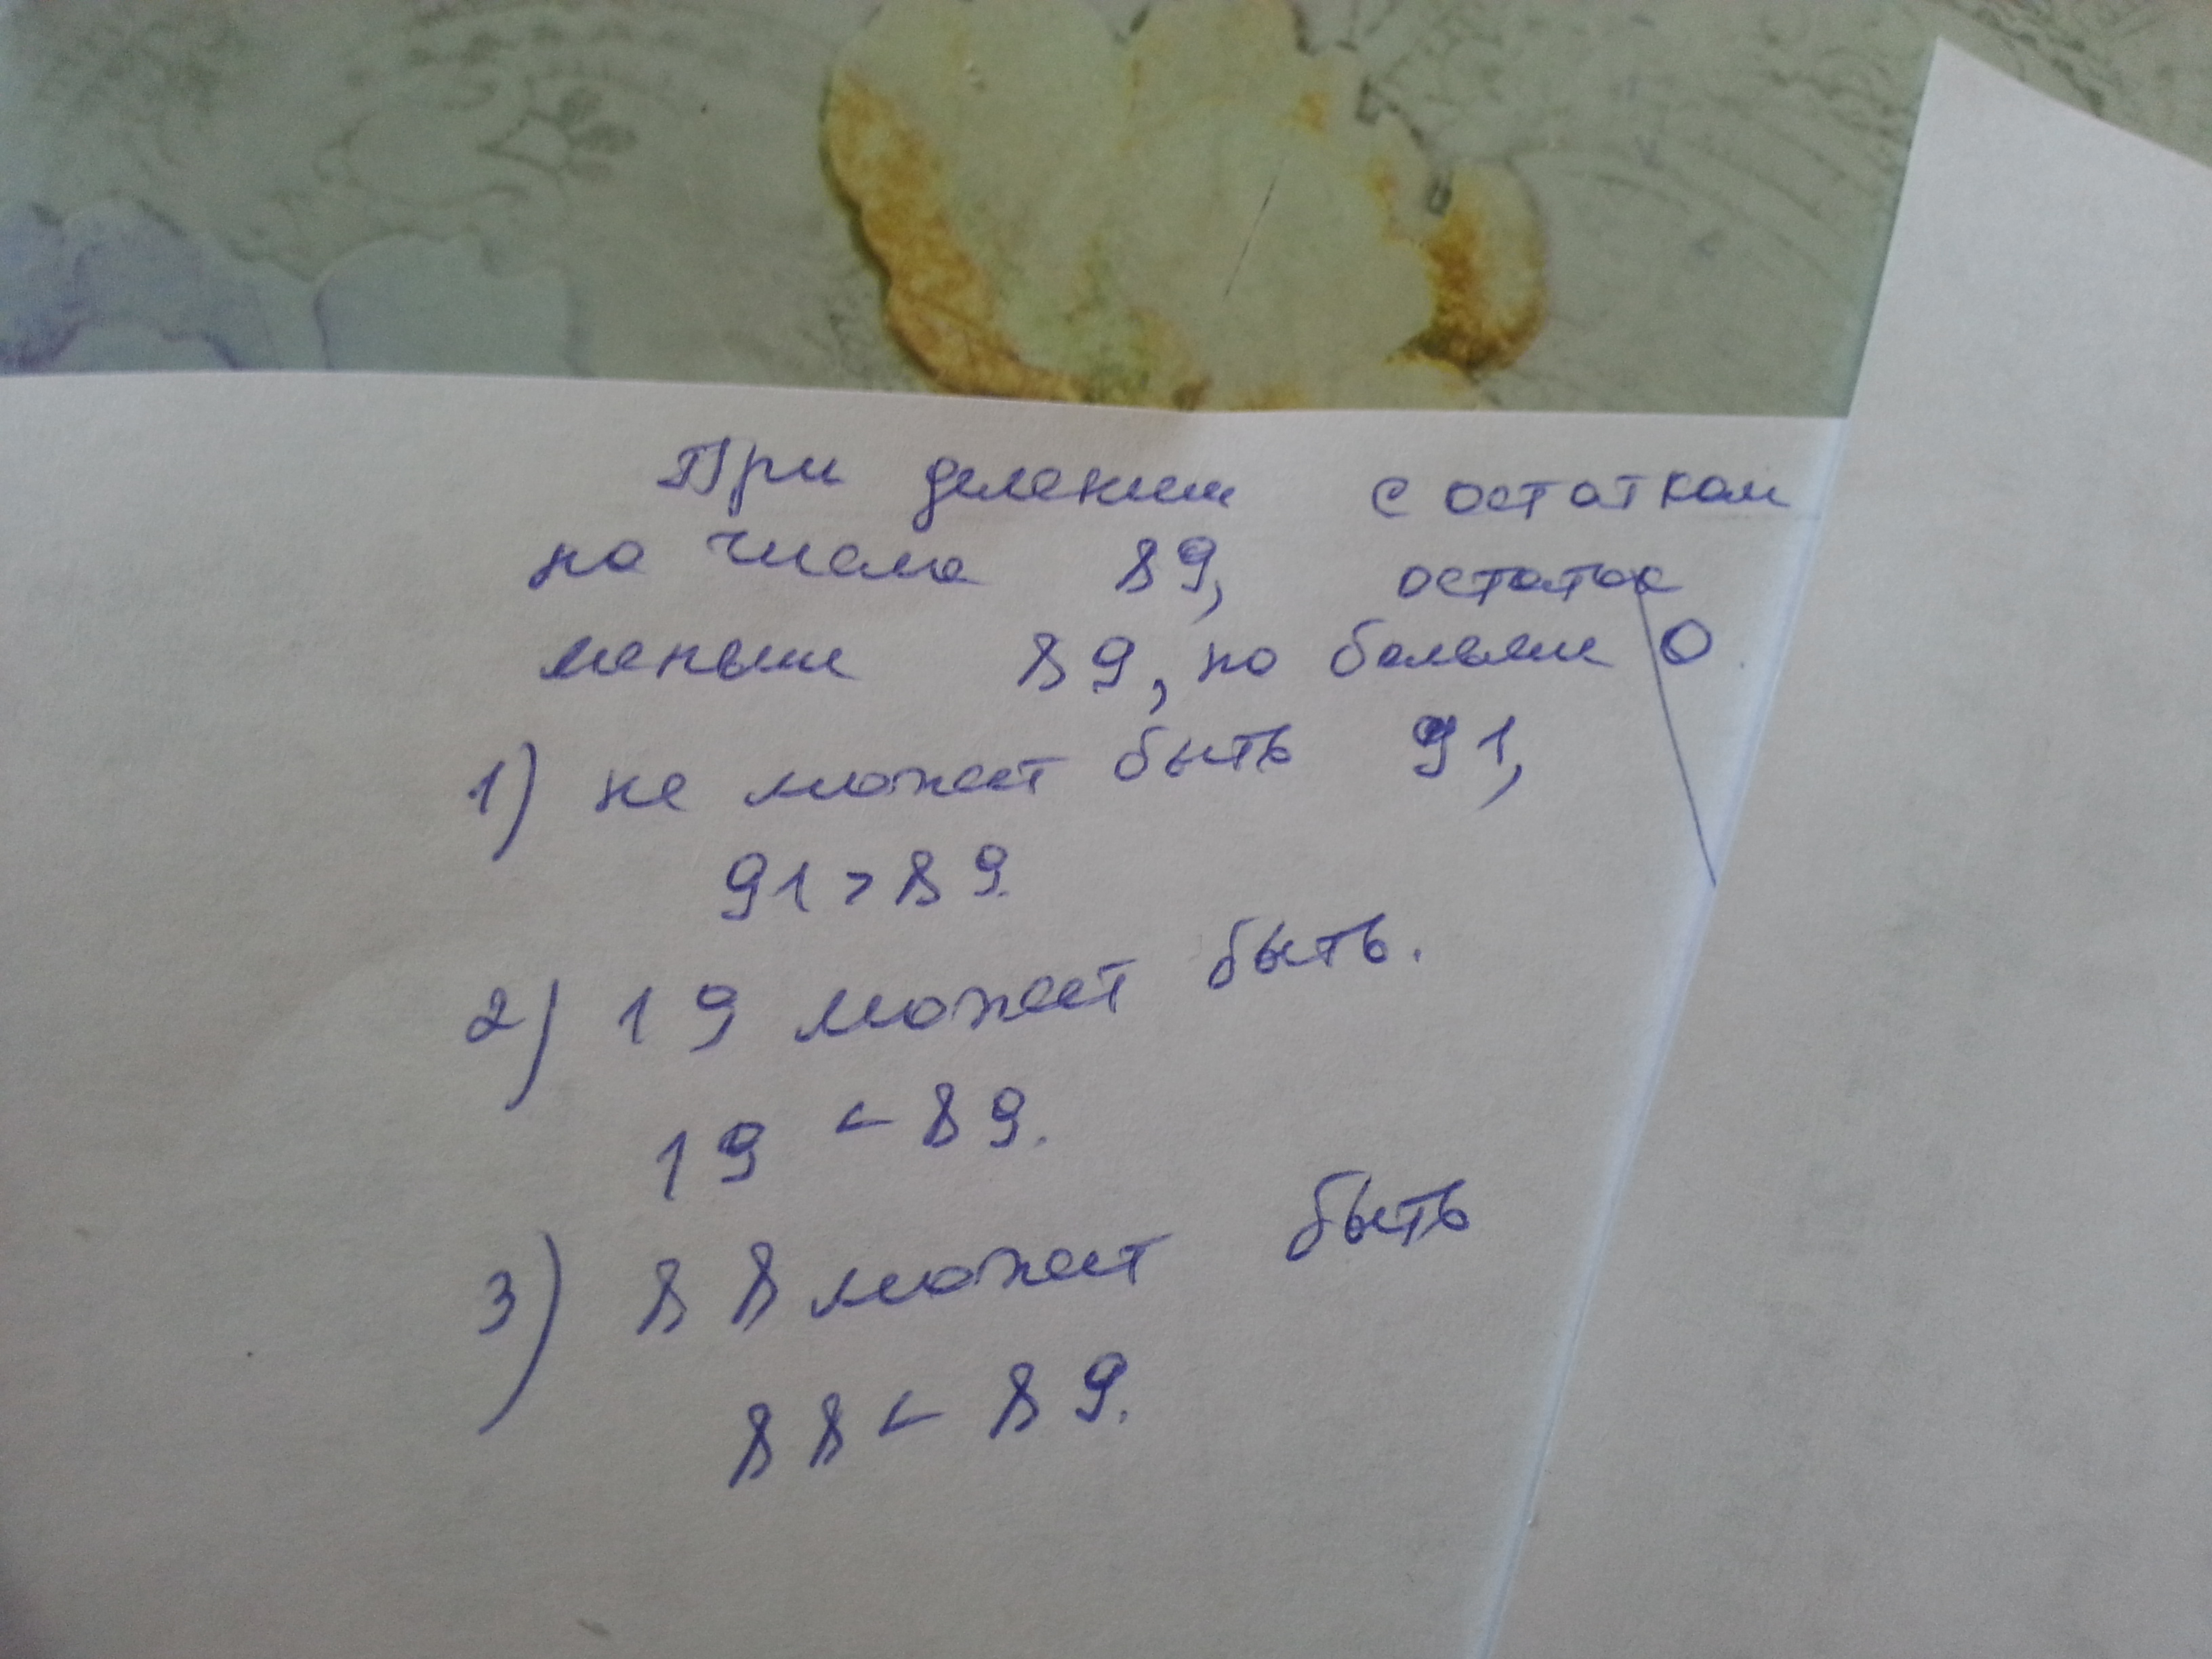 При делении с остатком
на число 89, остаток
меньше 89, но больше 0.
1) не может быть 91,
91 > 89.
2) 19 может быть.
19 < 89.
3) 88 может быть
88 < 89.